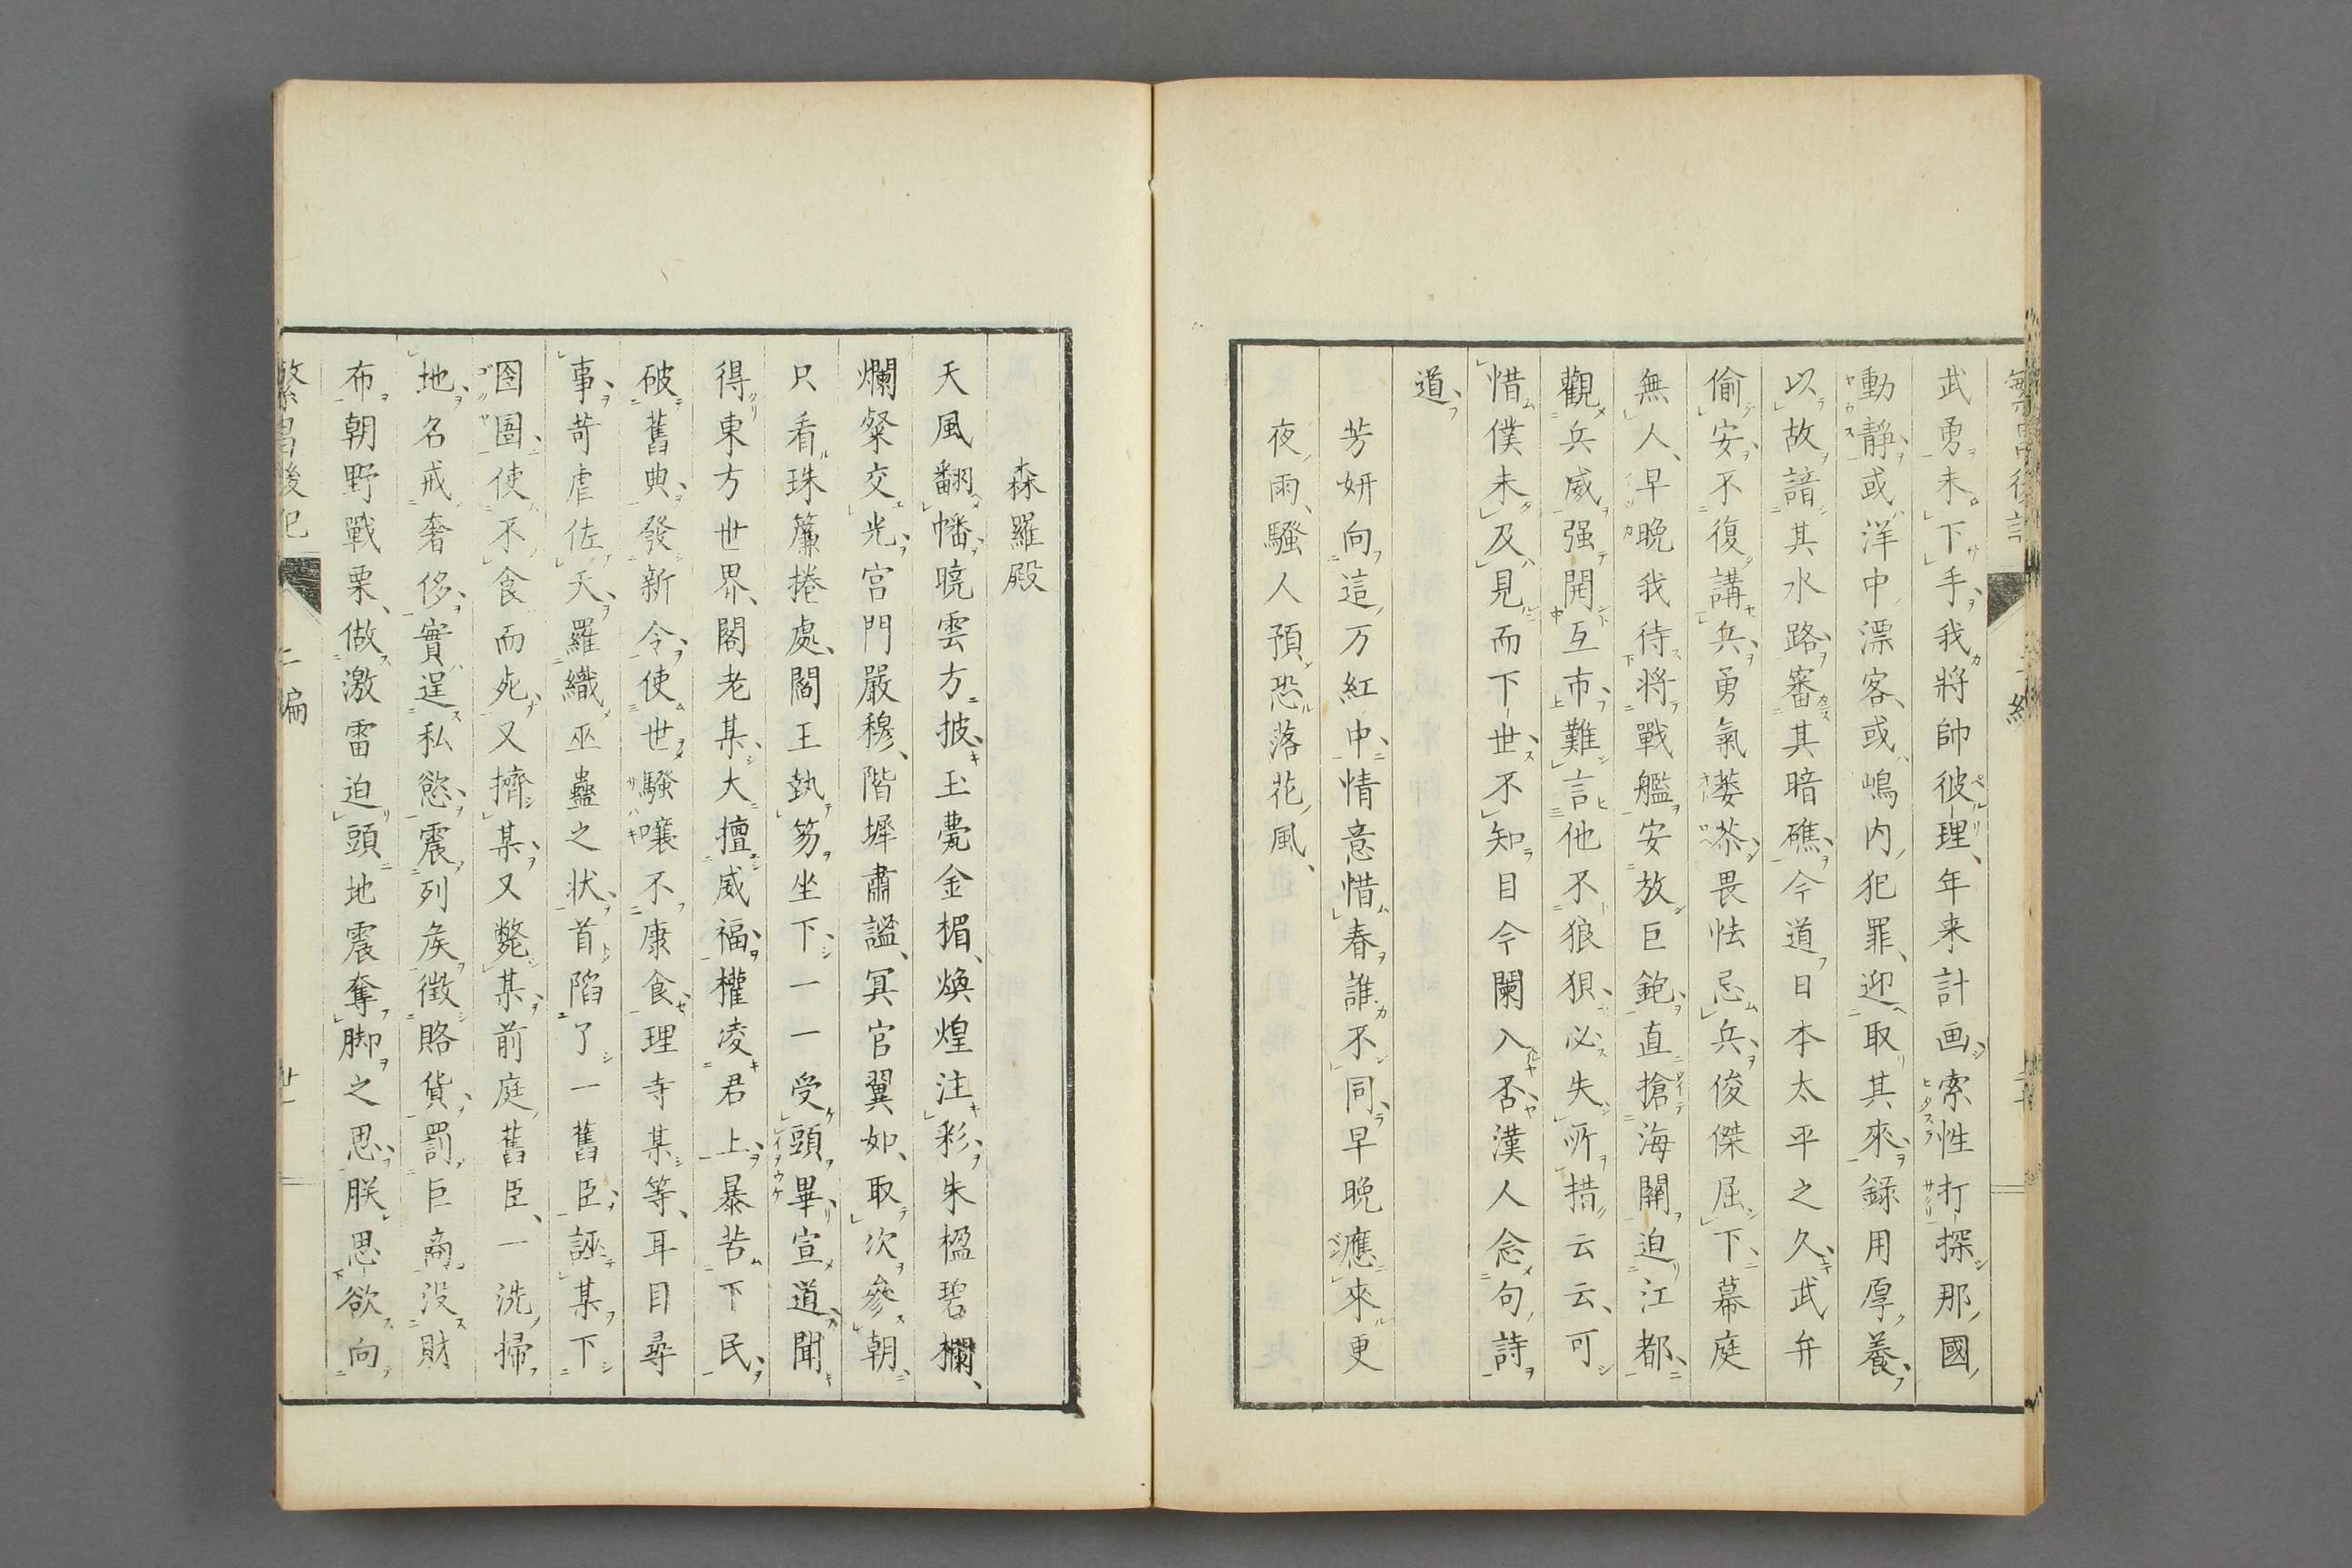 武勇未下手我將帥彼理年来計画索性打探那國
動靜或洋中漂客或嶋内犯罪迎取其來録用厚養
以故諳其水路審其暗礁今道日本太平之久武弁
偷安不復講兵勇氣蒌苶畏怯忌兵俊傑屈下幕庭
無人早晩我待將戰艦安放巨鉋直搶海關迫江都
觀兵威强開互市難言他不狼狽必失所措云云可
惜僕未及見而下世不知目今闌入否漢人念句詩
道
芳妍向這万紅中情意惜春誰不同早晩應來更
夜雨騷人預恐落花風
森羅殿
天風翻幡曉雲方披玉甍金楣煥煌注彩朱楹碧欄
爛粲交光宮門嚴穆階墀肅謐冥官翼如取次參朝
只看珠簾捲處閻王執笏坐下一一受頭畢宣道聞
得東方世界閣老某大擅威福權凌君上暴苦下民
破舊典發新令使世騷嚷不康食理寺某等耳目尋
事苛虐佐天羅織巫蠱之状首陷了一舊臣誣某下
囹圄使不食而死又擠某又斃某前庭舊臣一洗掃
地名戒奢侈實逞私慾震列矦徴賂貨罰巨商没財
布朝野戰栗做激雷迫頭地震奪脚之思朕思欲向
繁昌後記 二編 廿一